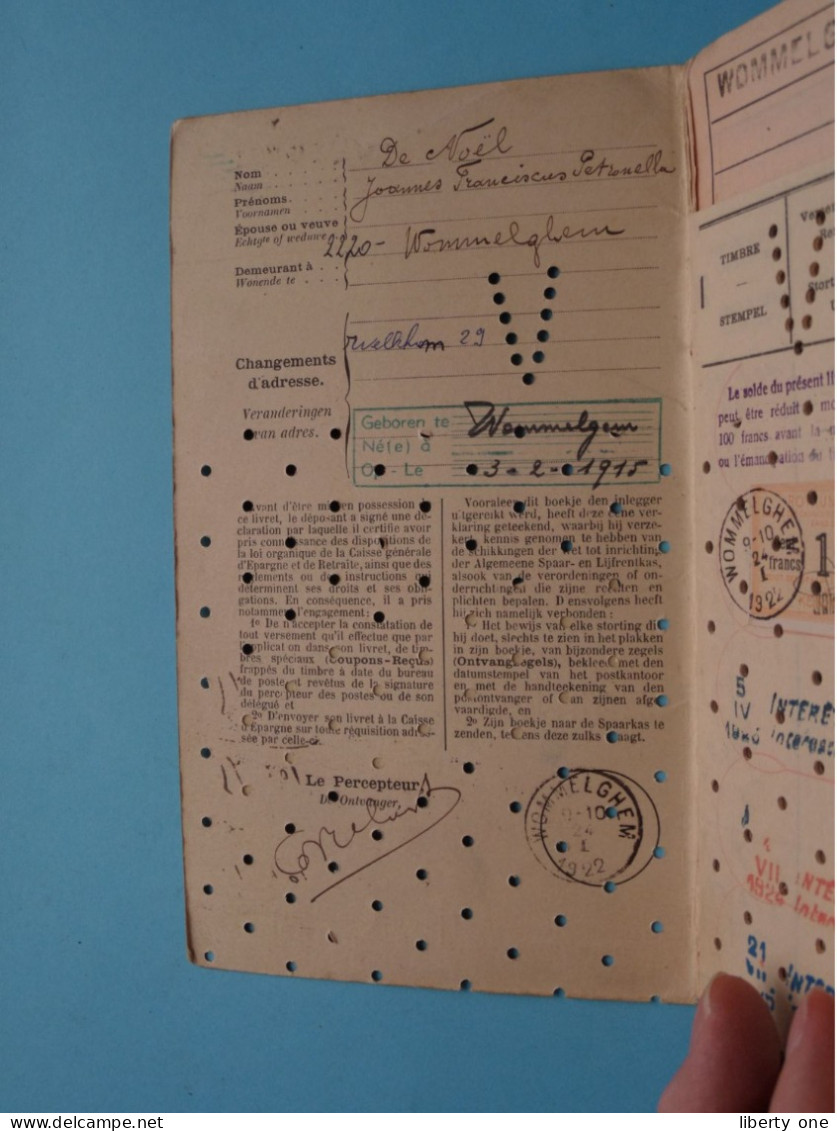 De Noël
Nom
Naam
Joannes Franciscus Petronella
Prénoms.
Voornamen
Épouse ou veuve
Echtgte of weduwe
2220- Wommelghem
Demeurant à
Wonende te
29
Changements
d'adresse.
Veranderingen
van adres.
Geboren te Wommelgem
Né(e) à
Op - Le 3-2-1915
Avant d'être mis en possession de
ce livret, le déposant a signé une dé-
claration par laquelle il certifie avoir
pris connaissance des dispositions de
la loi organique de la Caisse générale
d'Epargne et de Retraite, ainsi que des
règlements ou des instructions qui
déterminent ses droits et ses obli-
gations. En conséquence, il a pris
notamment l'engagement:
1º De n'accepter la constatation de
tout versement qu'il effectue que par
l'application dans son livret, de tim-
bres spéciaux (Coupons-Reçus)
frappés du timbre à date du bureau
de poste et revêtus de la signature
du percepteur des postes ou de son
délégué et
2º D'envoyer son livret à la Caisse
d'Épargne sur toute réquisition adres-
sée par celle-ci.
Vooraleer dit boekje den inlegger
uitgereikt werd, heeft deze eene ver-
klaring geteekend, waarbij hij verze-
kert, kennis genomen te hebben van
de schikkingen der wet tot inrichting
der Algemeene Spaar- en Lijfrentkas,
alsook van de verordeningen of on-
derrichtingen die zijne rechten en
plichten bepalen. Diensvolgens heeft
hij zich namelijk verbonden:
1º Het bewijs van elke storting die
hij doet, slechts te zien in het plakken
in zijn boekje, van bijzondere zegels
(Ontvangzegels), bekleed met den
datumstempel van het postkantoor
en met de handteekening van den
postontvanger of van zijnen afge-
vaardigde, en
2º Zijn boekje naar de Spaarkas te
zenden, telkens deze zulks vraagt.
Le Percepteur,
De Ontvanger,
WOMMELGHEM
9-10
24
1
1922
WOMMELG
TIMBRE
—
STEMPEL
Le solde du présent
peut être réduit
100 francs avant la
ou l'émancipation du
WOMMELGHEM
9-10
24
1
1922
francs
1
5
IV INTERÊ
Interest
VII INTE
1924
21
INTER
liberty one